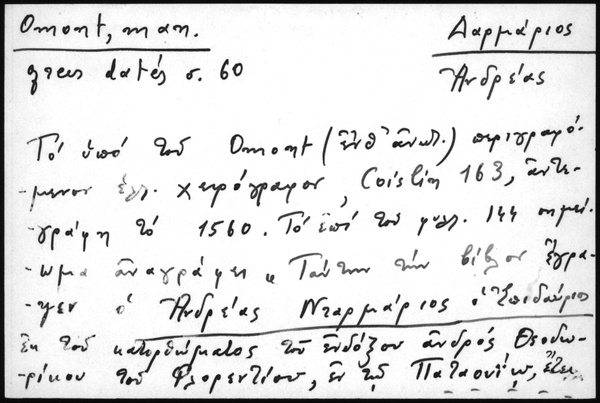 Omont, man.
Δαρμάριος
grecs datés σ. 60
Ἀνδρέας
Τό ὑπό τοῦ Omont (ἔνθ' ἀνωτ.) περιγραφό-
-μενον ἑλλ. χειρόγραφον, Coislin 163, ἀντε-
-γράφη τό 1560. Τό ἐπί τοῦ φυλλ. 144 σημεί-
-ωμα ἀναγράφει „ Ταύτην τήν βίβλον ἔγρα-
-ψεν ὁ Ἀνδρέας Νταρμάριος ὁ Ἐπιδαύριος
ἐκ τοῦ κατορθώματος τοῦ ἐνδόξου ἀνδρός Θεοδω-
ρίκου τοῦ Φλορεντίου, ἐν τῷ Παταουίῳ, ἔτει